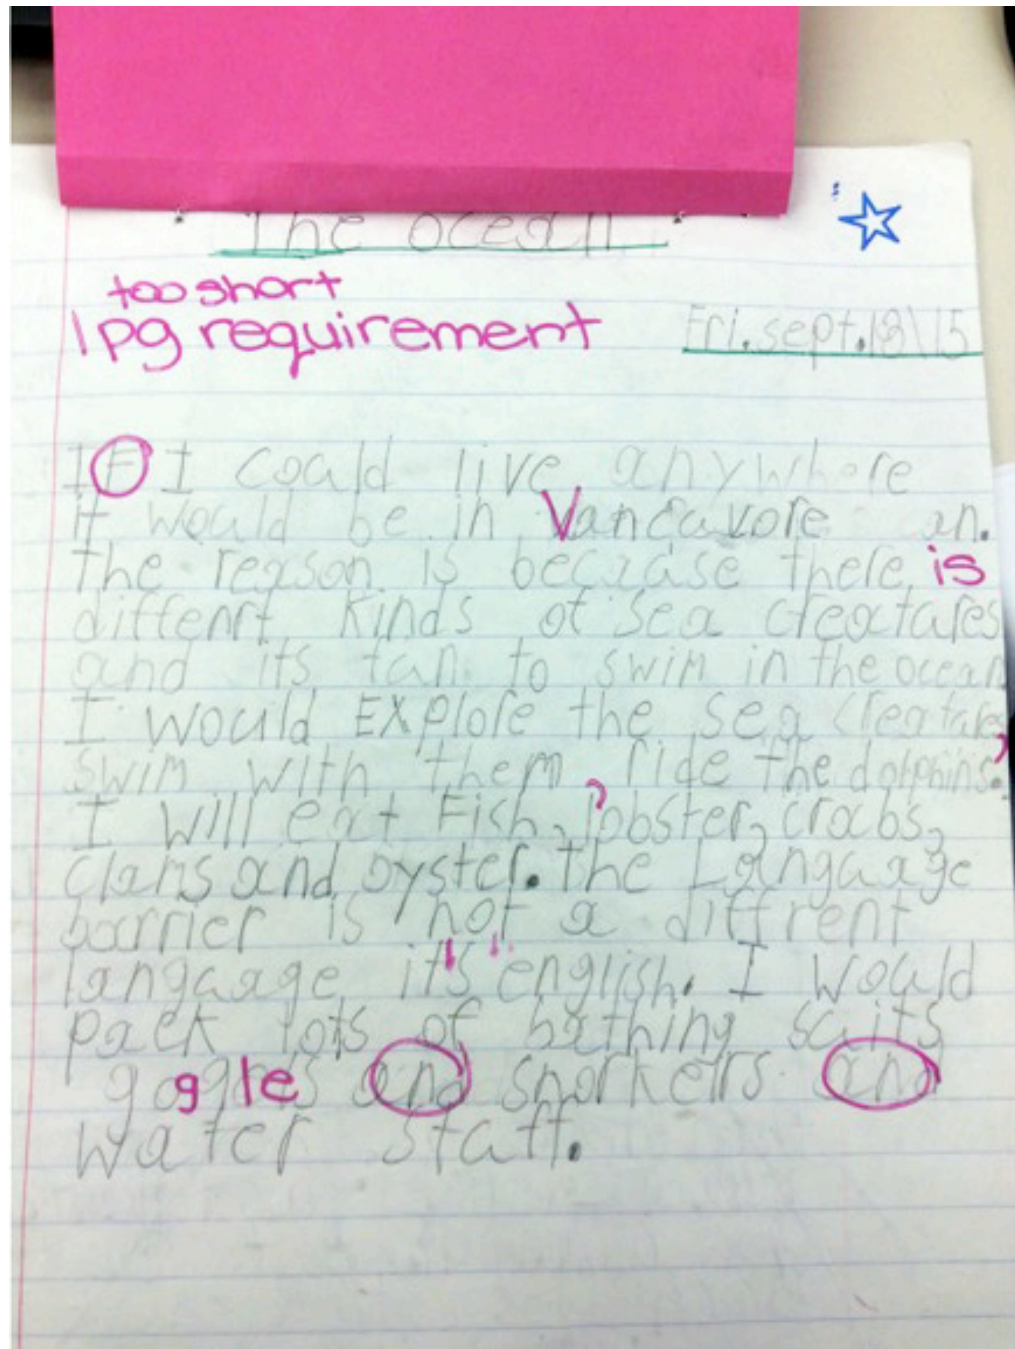 The ocean
too short
1 pg requirement
Fri. sept. 18\15
IF I could live anywhere
it would be in Vancuvore an.
the reason is becuase there is
differnt kinds of sea creatures
and its fun to swim in the ocean
I would EXplore the sea creatures
swim with them, ride the dolphins.
I will eat Fish, lobster, crabs,
clams and oyster. the Language
barrier is not a diffrent
language it's english. I would
pack lots of bathing suits
goggles and snorkells and
water stuff.